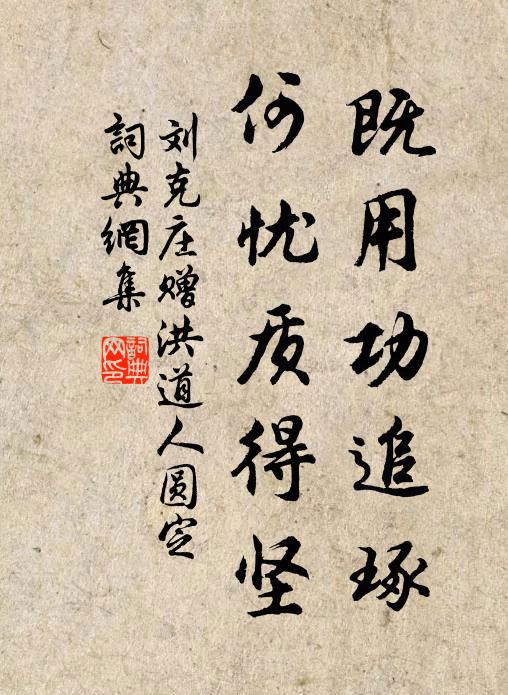 既用功追琢
何忧质得坚
刘克庄赠洪道人圆定
詞典網集
詞典網印